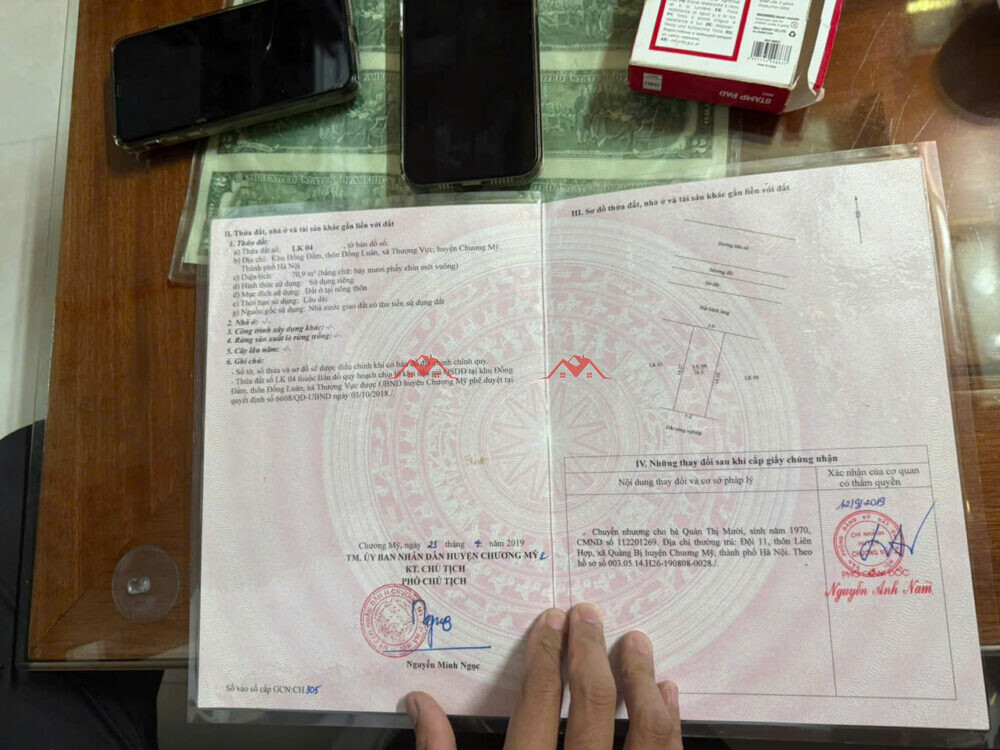 STAMP PAD
THE UNITED STATES OF AMERICA
II. Thửa đất, nhà ở và tài sản khác gắn liền với đất
1. Thửa đất:
a) Thửa đất số: LK 04 , tờ bản đồ số:
b) Địa chỉ: Khu Đồng Đầm, thôn Đồng Luân, xã Thượng Vực, huyện Chương Mỹ,
Thành phố Hà Nội
c) Diện tích: 70,9 m² (bằng chữ: bảy mươi phẩy chín mét vuông)
d) Hình thức sử dụng: Sử dụng riêng
đ) Mục đích sử dụng: Đất ở tại nông thôn
e) Thời hạn sử dụng: Lâu dài
g) Nguồn gốc sử dụng: Nhà nước giao đất có thu tiền sử dụng đất
2. Nhà ở: -/-
3. Công trình xây dựng khác: -/-
4. Rừng sản xuất là rừng trồng: -/-
5. Cây lâu năm: -/-
6. Ghi chú:
- Số tờ, số thửa và sơ đồ sẽ được điều chỉnh khi có bản đồ địa chính chính quy.
- Thửa đất số LK 04 thuộc Bản đồ quy hoạch chia lô khu đấu giá QSDĐ tại khu Đồng
Đầm, thôn Đồng Luân, xã Thượng Vực được UBND huyện Chương Mỹ phê duyệt tại
quyết định số 6608/QĐ-UBND ngày 03/10/2018./.
Chương Mỹ, ngày 25 tháng 7 năm 2019
TM. ỦY BAN NHÂN DÂN HUYỆN CHƯƠNG MỸ
KT. CHỦ TỊCH
PHÓ CHỦ TỊCH
Nguyễn Minh Ngọc
Số vào sổ cấp GCN:CH 305
III. Sơ đồ thửa đất, nhà ở và tài sản khác gắn liền với đất
B
Đường liên xã
Mương đất
LK-04
70.9
5.0
5.0
Đất nông nghiệp
IV. Những thay đổi sau khi cấp giấy chứng nhận
Nội dung thay đổi và cơ sở pháp lý
Xác nhận của cơ quan
có thẩm quyền
- Chuyển nhượng cho bà Quản Thị Mười, sinh năm 1970,
CMND số 112201269. Địa chỉ thường trú: Đội 11, thôn Liên
Hợp, xã Quảng Bị huyện Chương Mỹ, thành phố Hà Nội. Theo
hồ sơ số 003.05.14.H26-190808-0028./.
12/9/2019
CHI NHÁNH
PHÓ GIÁM ĐỐC
Nguyễn Anh Nam